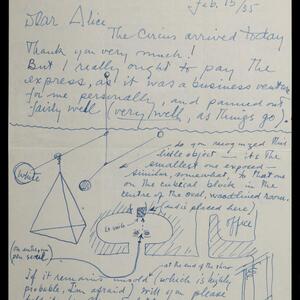 Feb. 15/35
Dear Alice
The Circus arrived today
Thank you very much!
But I really ought to pay the
express, as it was a business venture
for me personally, and panned out
fairly well (very well, as things go).
do you recognize this
little object — it's the
smallest one exposed —
similar, somewhat, to that one
on the cubical block in the
centre of the oval, woodlined room.
(and is placed here)
White
office
(on
If it remains unsold (which is highly
probable, I'm afraid) will you please
at the end of the show